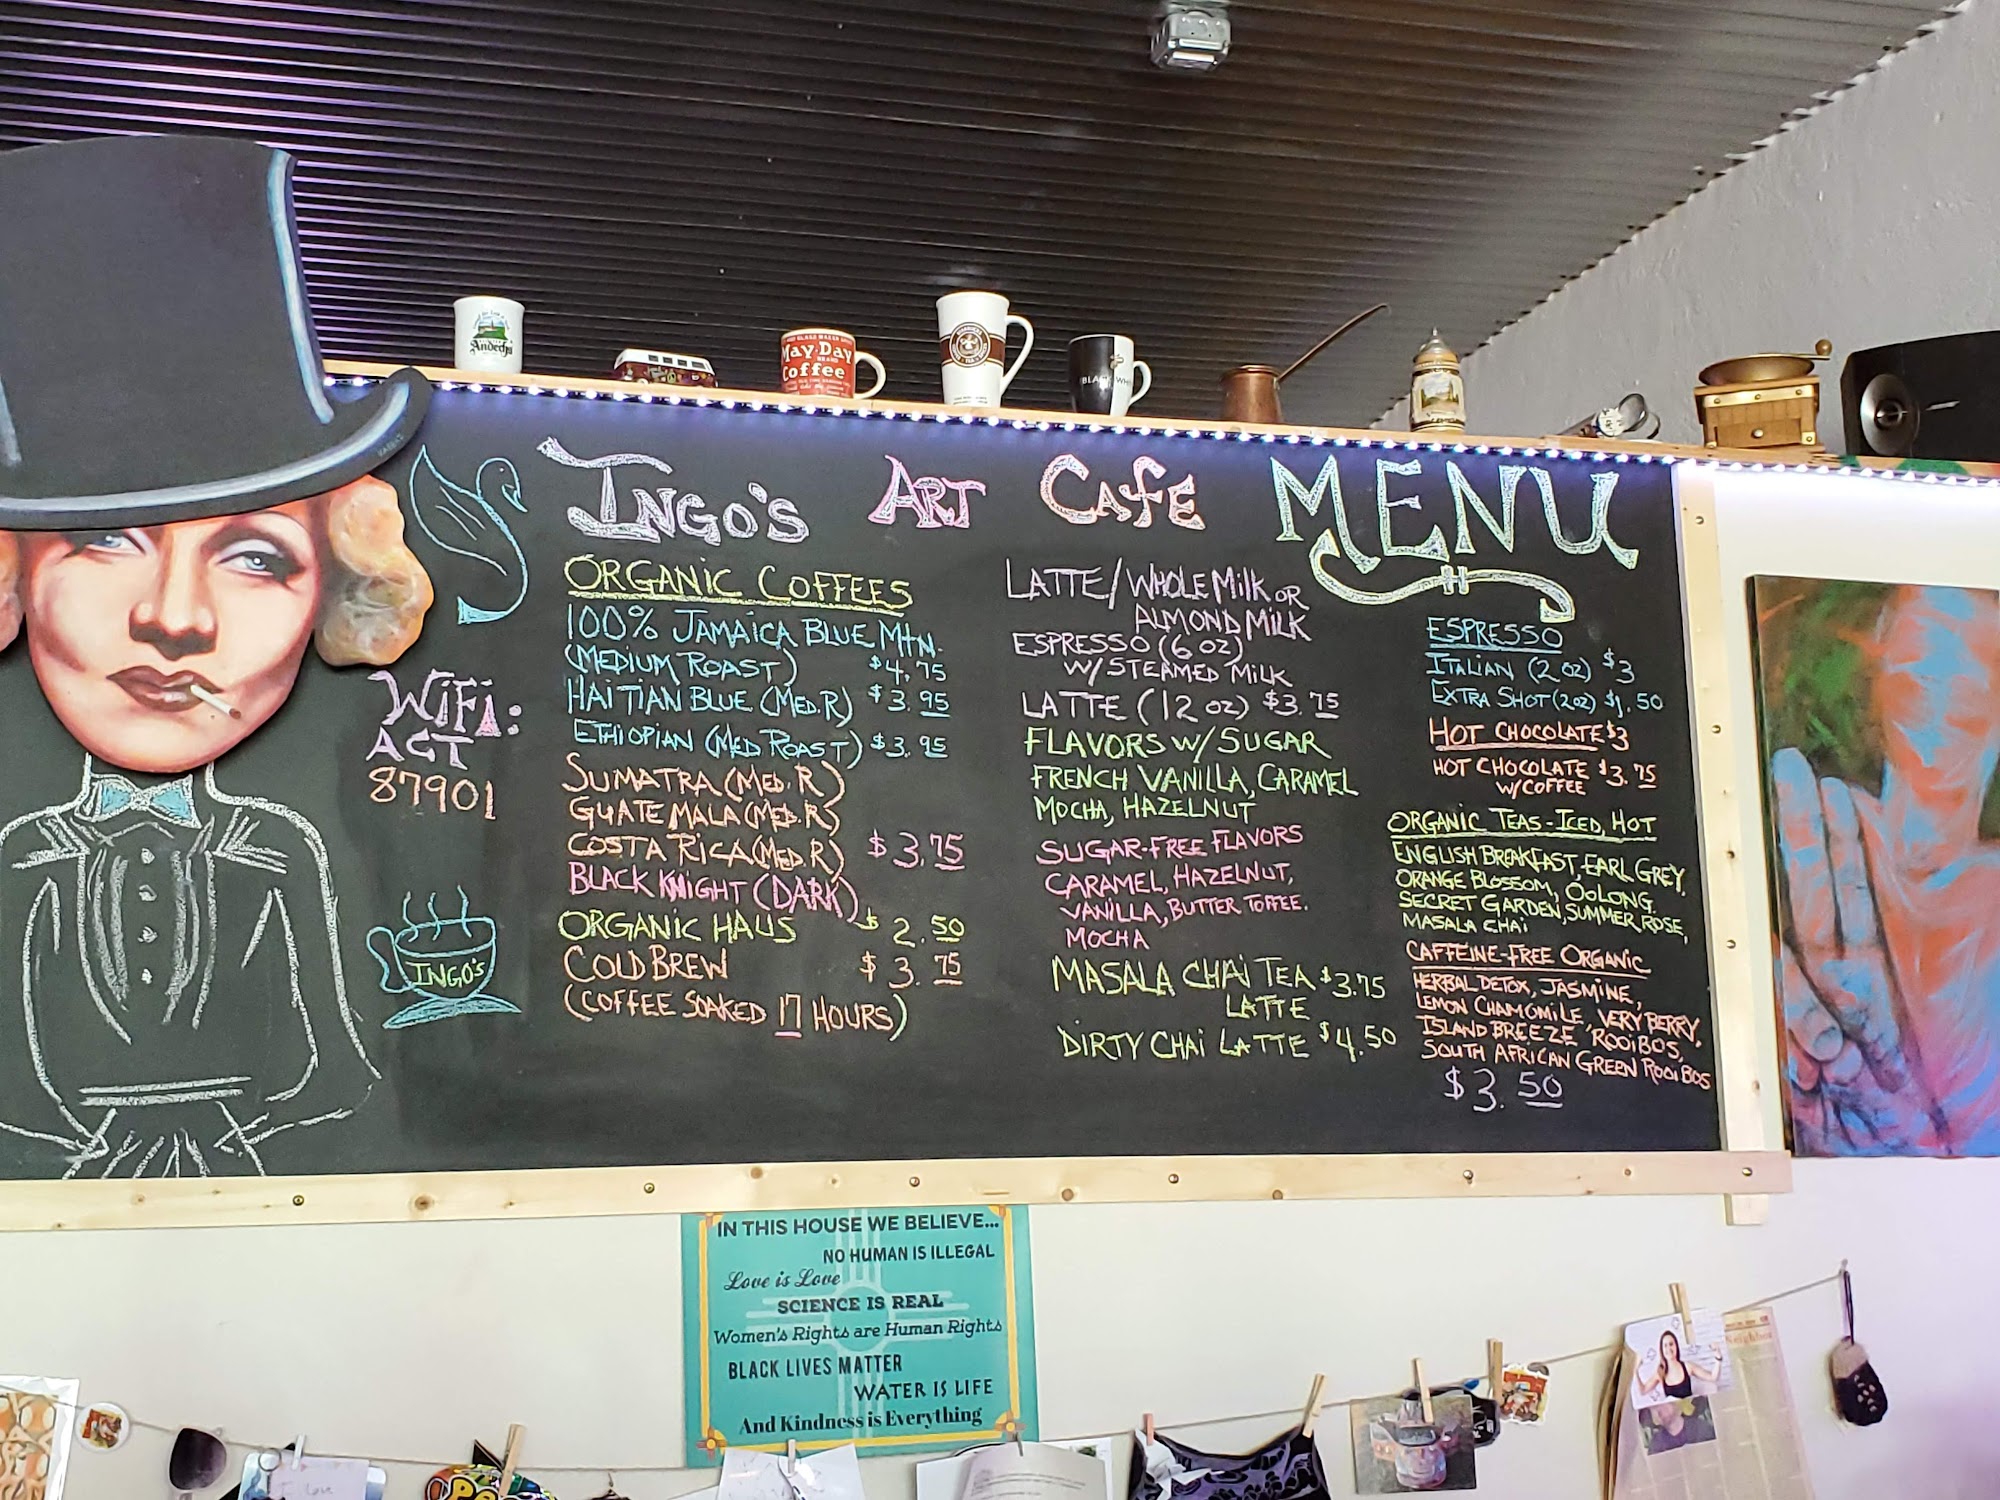 Andechs
May Day
Coffee
BLACK WHITE
INGO'S ART CAFE MENU
WiFi:
ACT
87901
INGO'S
ORGANIC COFFEES
100% JAMAICA BLUE MTN.
(MEDIUM ROAST) $4.75
HAITIAN BLUE (MED.R) $3.95
ETHIOPIAN (MED ROAST) $3.95
SUMATRA (MED.R)
GUATEMALA (MED.R)
COSTA RICA (MED.R) $3.75
BLACK KNIGHT (DARK)
ORGANIC HAUS $2.50
COLD BREW $3.75
(COFFEE SOAKED 17 HOURS)
LATTE/WHOLE MILK OR
ALMOND MILK
ESPRESSO (6 OZ)
W/STEAMED MILK
LATTE (12 OZ) $3.75
FLAVORS W/SUGAR
FRENCH VANILLA, CARAMEL
MOCHA, HAZELNUT
SUGAR-FREE FLAVORS
CARAMEL, HAZELNUT,
VANILLA, BUTTER TOFFEE.
MOCHA
MASALA CHAI TEA $3.75
LATTE
DIRTY CHAI LATTE $4.50
ESPRESSO
ITALIAN (2 OZ) $3
EXTRA SHOT (2OZ) $1.50
HOT CHOCOLATE $3
HOT CHOCOLATE $3.75
W/COFFEE
ORGANIC TEAS-ICED, HOT
ENGLISH BREAKFAST, EARL GREY,
ORANGE BLOSSOM, OOLONG.
SECRET GARDEN, SUMMER ROSE,
MASALA CHAI
CAFFEINE-FREE ORGANIC
HERBAL DETOX, JASMINE,
LEMON CHAMOMILE, VERY BERRY,
ISLAND BREEZE, ROOIBOS,
SOUTH AFRICAN GREEN ROOIBOS
$3.50
IN THIS HOUSE WE BELIEVE...
NO HUMAN IS ILLEGAL
Love is Love
SCIENCE IS REAL
Women's Rights are Human Rights
BLACK LIVES MATTER
WATER IS LIFE
And Kindness is Everything
Neighbor